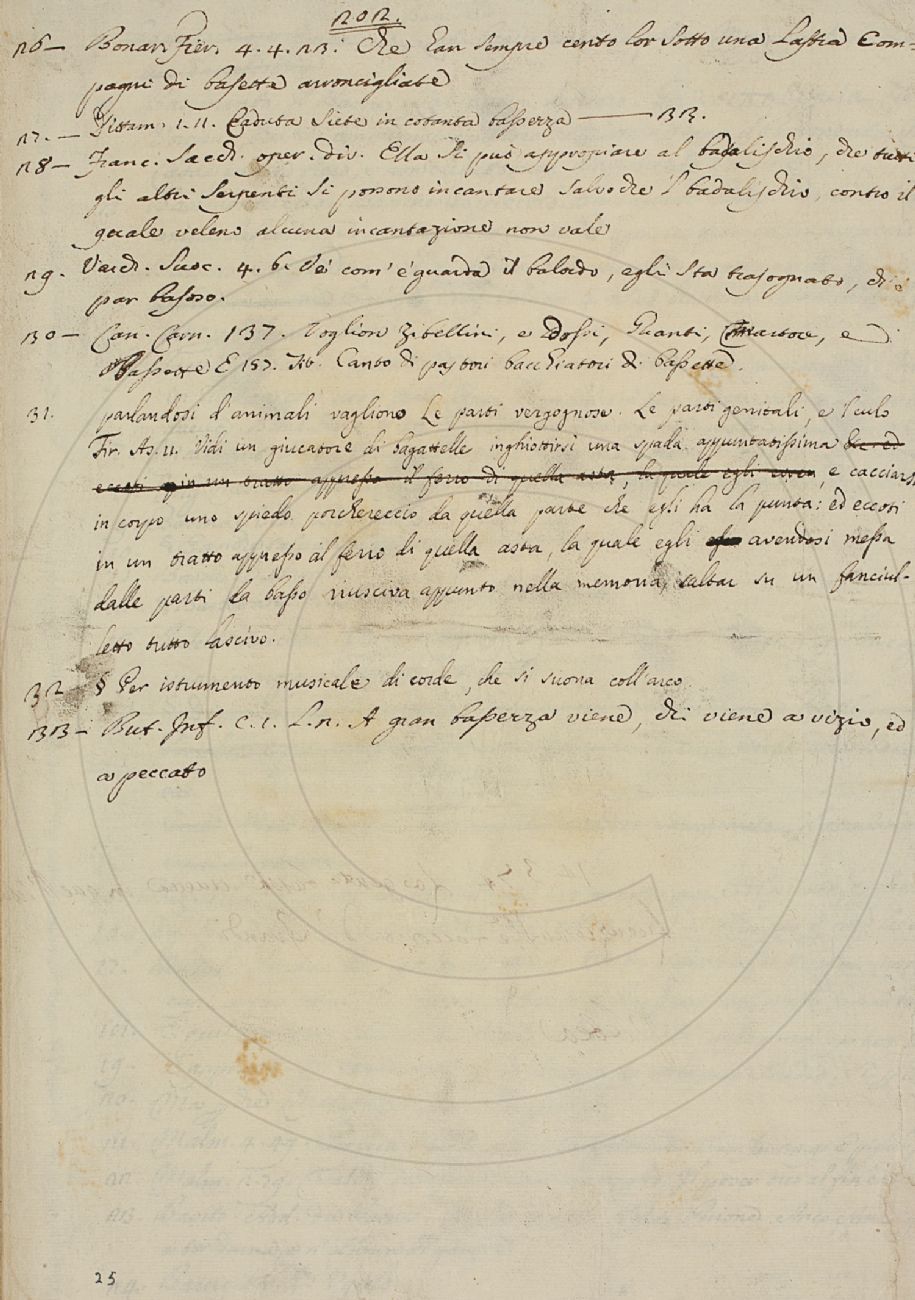 202.
26 — Bonarr. Fier. 4. 4. 23. Che han sempre cento lor sotto una lastra Com=
pagni di basette arroncigliate
27. — Dittam. 1. 11. Caduta siete in cotanta bassezza —— 33.
28 — Franc. Sacch. oper. div. Ella si può appropiare al badalischio, che tutti
gli altri serpenti si possono incantare salvo che 'l badalischio, contro il
quale veleno alcuna incantazione non vale
29. Varch. Suoc. 4. 6. Ve' com' e' guarda il balordo, egli sta trasognato, ch' e'
par basoso.
30 — Can. Carn. 137. Voglion Zibellini, e dossi, Guanti, Martore, e
Bassette E 157. Canto di pastori bacchiatori di bassette.
31. parlandosi d'animali vagliono Le parti vergognose. Le parti genitali, e 'l culo
Fir. As. 11. Vidi un giucatore di bagattelle inghiottirsi una spada appuntatissima
eccoti in un tratto appresso il ferro di quella asta, la quale egli, e cacciarsi
in corpo uno spiedo porchereccio da quella parte che egli ha la punta: ed eccoti
in un tratto appresso al ferro di quella asta, la quale egli avendosi messa
dalle parti da basso riusciva appunto nella memoria, saltar su un fanciul-
letto tutto lascivo.
32 — § Per istrumento musicale di corde, che si suona coll'arco.
33 — But. Inf. C. 1. L. n. A gran bassezza viene, chi viene a vizio, ed
a peccato
25